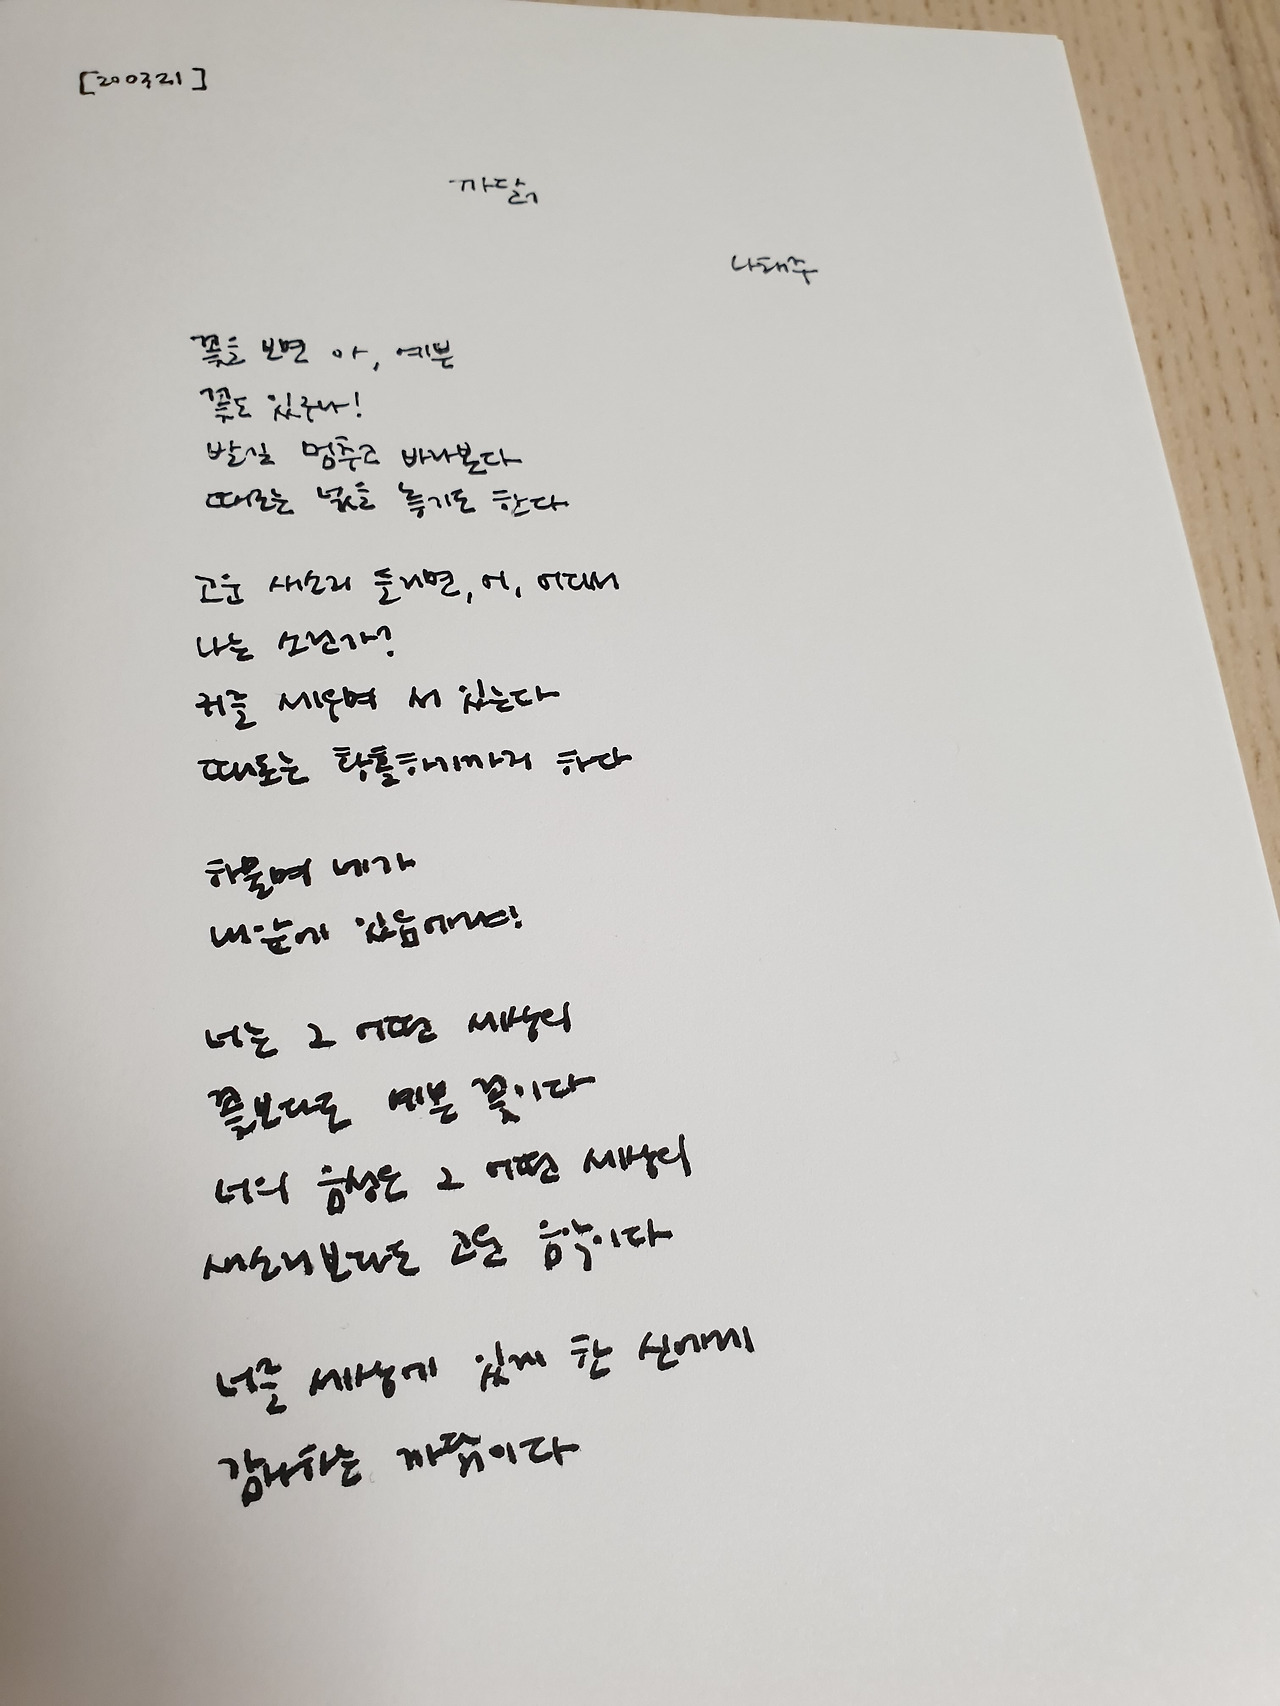 [200321]
까닭
나태주
꽃을 보면 아, 예쁜
꽃도 있구나!
발길 멈추고 바라본다
때로는 넋을 놓기도 한다
고운 새소리 들리면, 어, 어디서
나는 소린가?
귀를 세우며 서 있는다
때로는 황홀하기까지 하다
하물며 네가
내 앞에 있음에랴!
너는 그 어떤 세상의
꽃보다도 예쁜 꽃이다
너의 음성은 그 어떤 세상의
새소리보다도 고운 음악이다
너를 세상에 있게 한 신에게
감사하는 까닭이다